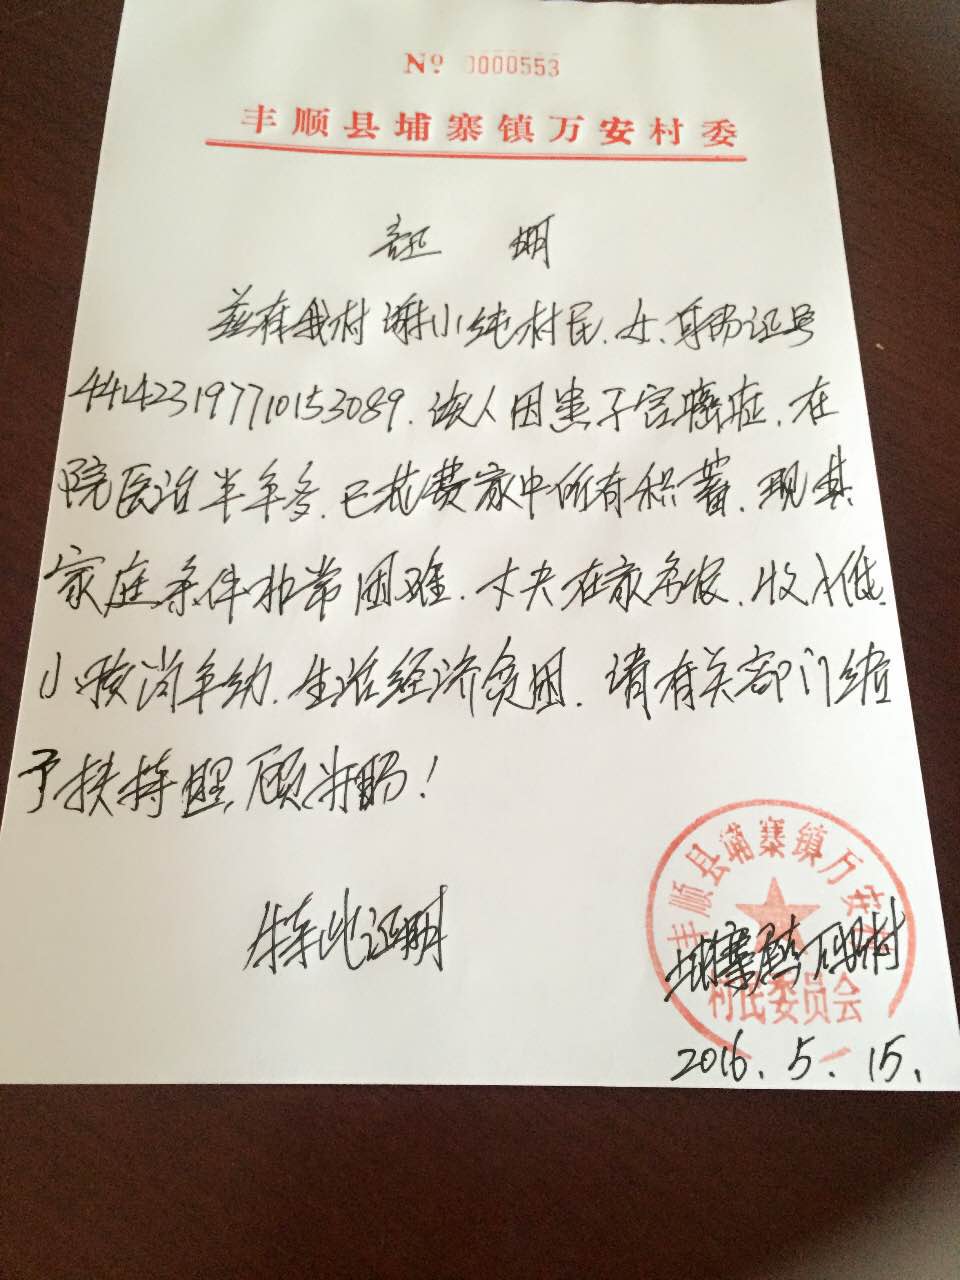 No 0000553
丰顺县埔寨镇万安村委
证 明
兹有我村谢小纯村民、女、身份证号
441423197710153089.该人因患子宫癌症、在
院医治半年多、已花费家中所有积蓄、现其
家庭条件非常困难、丈夫在家务农、收入低、
小孩尚年幼、生活经济贫困、请有关部门给
予扶持照顾为盼！
特此证明
丰顺县埔寨镇万安村
村民委员会
埔寨镇万安村
2016.5.15.